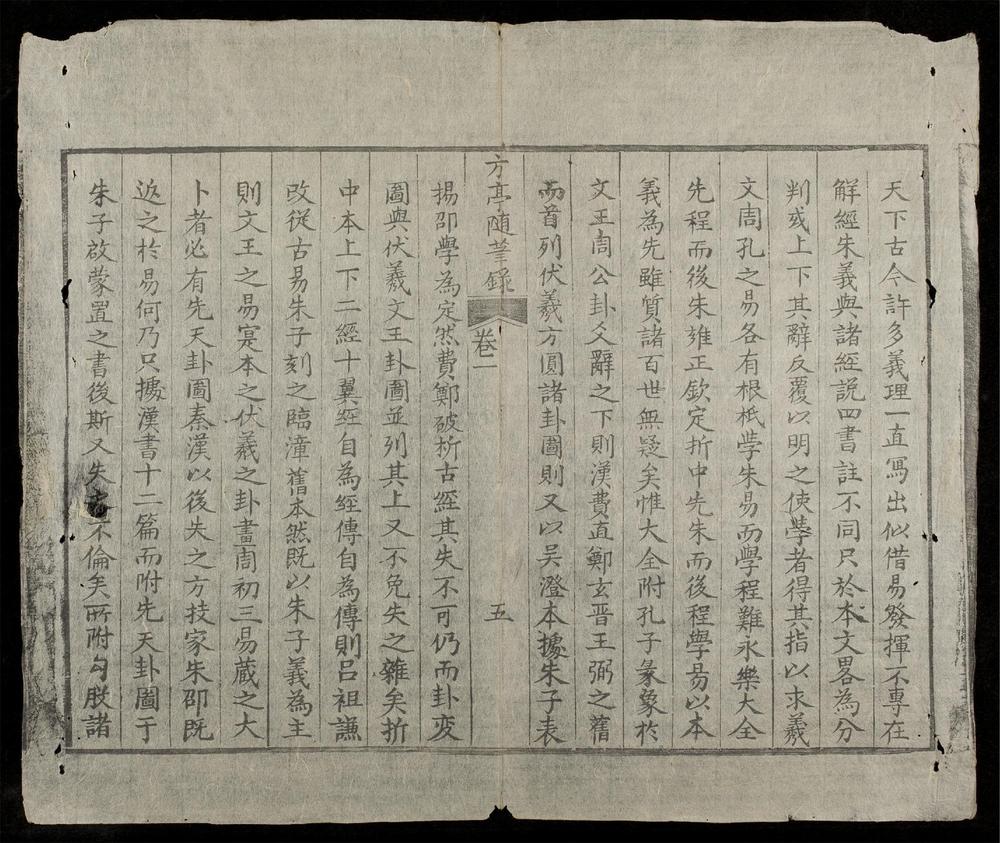 天下古今許多義理一直寫出似借易發揮不專在
觧經朱義與諸經説四書註不同只於本文畧為分
判或上下其辭反覆以明之使學者得其指以求羲
文周孔之易各有根柢學朱易而學程難永樂大全
先程而後朱雍正欽定折中先朱而後程學易以本
義為先雖質諸百世無疑矣惟大全附孔子彖象於
文王周公卦爻辭之下則漢費直鄭玄晋王弼之舊
而首列伏羲方圓諸卦圖則又以吴澄本據朱子表
方亭随筆録
卷一
五
揚邵學為定然費鄭破析古經其失不可仍而卦变
圖與伏羲文王卦圖並列其上又不免失之雜矣折
中本上下二經十翼經自為經傳自為傳則吕祖謙
改從古易朱子刻之臨漳舊本然既以朱子義為主
則文王之易寔本之伏羲之卦畫周初三易蔵之大
卜者必有先天卦圖秦漢以後失之方技家朱邵既
返之於易何乃只據漢書十二篇而附先天卦圖于
朱子啟蒙置之書後斯又失不倫矣所附勾股諸